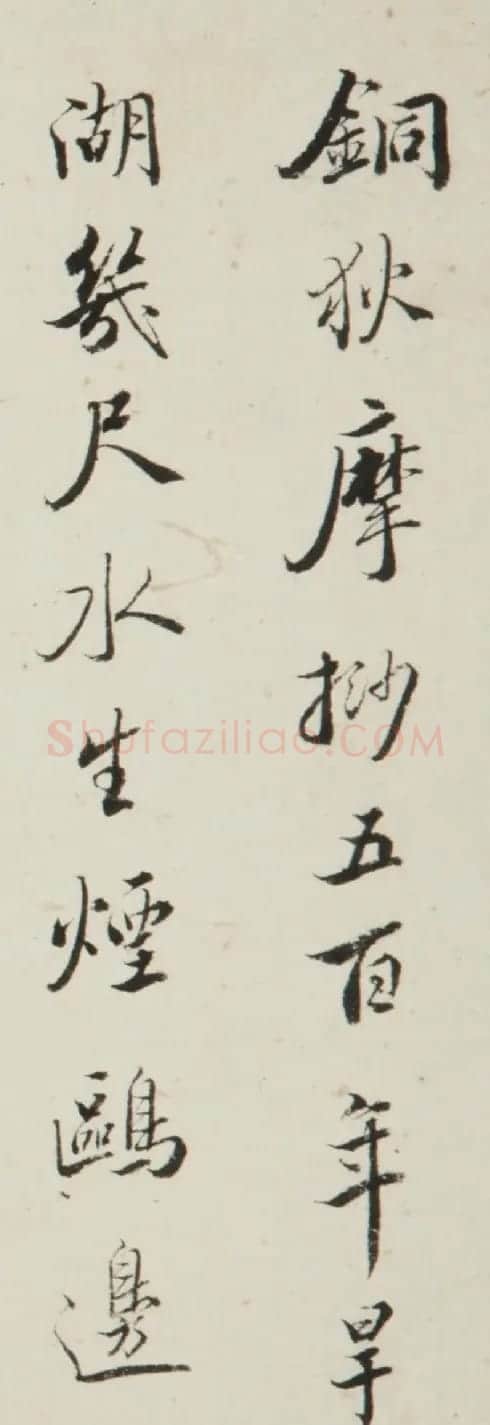 銅狄摩挲五百年旱
湖幾尺水生煙鷗邊
Shufaziliao.COM